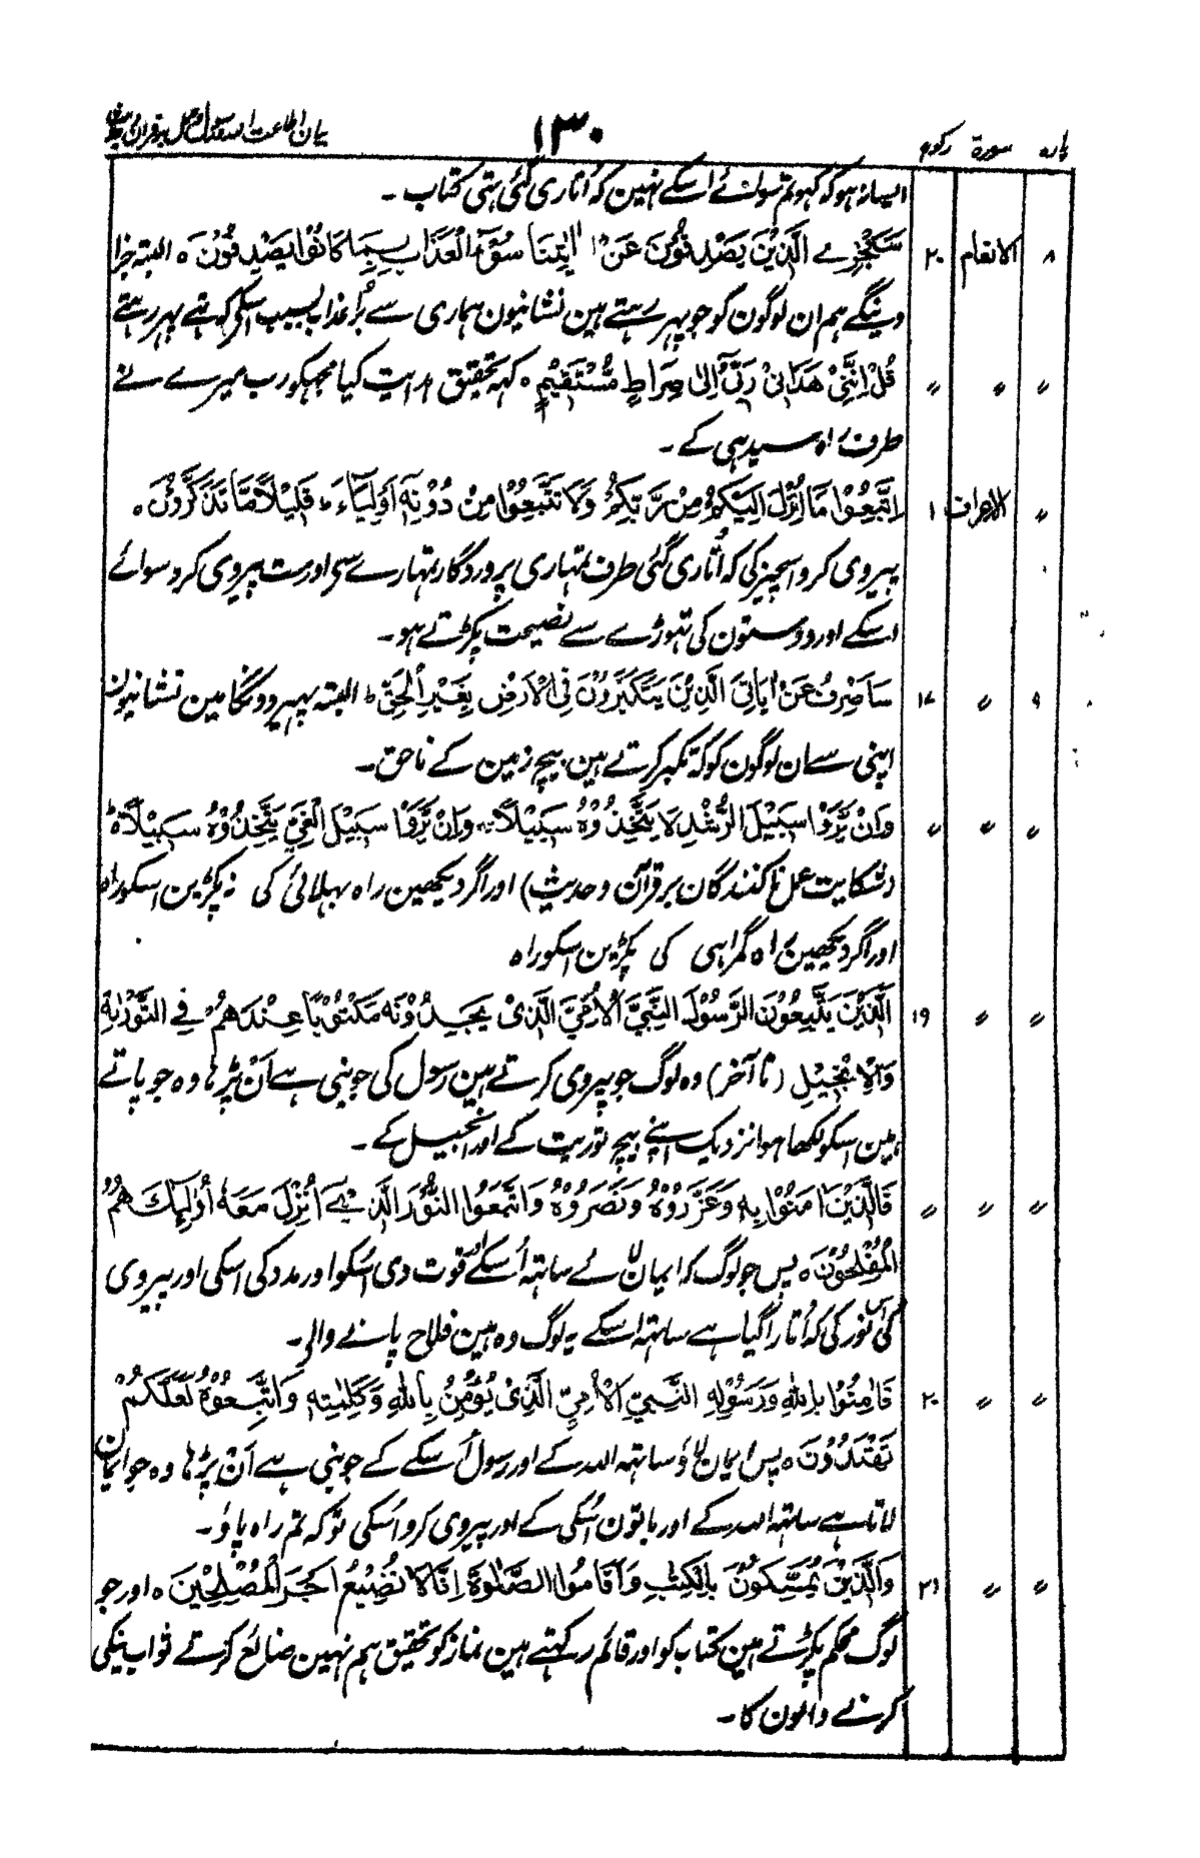 پارہ سورۃ رکوع ۱۳۰ بیان اطاعت رسول و عمل بر قرآن
ایسا نہ ہو کہ کہو تم سوائے اسکے نہین کہ اُتاری گئی ہتی کتاب ۔
۸ الانعام ۲۰ سَنَجْزِے الَّذِيْنَ يَصْدِفُوْنَ عَنْ اٰيٰتِنَا سُوْٓءَ الْعَذَابِ بِمَا كَانُوْا يَصْدِفُوْنَ ه البتہ جزا
دینگے ہم ان لوگون کو جو پہر رہتے ہین نشانیون ہماری سے بُرا عذاب بسبب اسکے کہ تہے پہر رہتے
〃 〃 〃 قُلْ اِنَّنِيْ هَدَانِيْ رَبِّيْٓ اِلٰى صِرَاطٍ مُّسْتَقِيْمٍ ه کہہ تحقیق ہدایت کیا مجہکو رب میرے نے
طرف راہ سیدہی کے ۔
〃 الاعراف ۱ اِتَّبِعُوْا مَا اُنْزِلَ اِلَيْكُمْ مِنْ رَّبِّكُمْ وَلَا تَتَّبِعُوْا مِنْ دُوْنِهٖٓ اَوْلِيَآءَ ط قَلِيْلًا مَّا تَذَكَّرُوْنَ ه
پیروی کرو اسچیز کی کہ اُتاری گئی طرف تمہاری پروردگار تمہارے سی اور مت پیروی کرو سوائے
اسکے اور دوستون کی تہوڑے سے نصیحت پکڑتے ہو ۔
۹ 〃 ۱۷ سَاَصْرِفُ عَنْ اٰيَاتِيَ الَّذِيْنَ يَتَكَبَّرُوْنَ فِي الْاَرْضِ بِغَيْرِ الْحَقِّ ط البتہ پہیر دونگا مین نشانیون
اپنی سے ان لوگون کو کہ تکبر کرتے ہین بیچ زمین کے ناحق ۔
〃 〃 〃 وَاِنْ يَّرَوْا سَبِيْلَ الرُّشْدِ لَا يَتَّخِذُوْهُ سَبِيْلًا وَاِنْ يَّرَوْا سَبِيْلَ الْغَيِّ يَتَّخِذُوْهُ سَبِيْلًا ط
(شکایت عمل نکنندگان بر قرآن و حدیث) اور اگر دیکھین راہ بہلائی کی نہ پکڑین اسکو راہ
اور اگر دیکھین راہ گمراہی کی پکڑین اسکو راہ
〃 〃 ۱۹ اَلَّذِيْنَ يَتَّبِعُوْنَ الرَّسُوْلَ النَّبِيَّ الْاُمِّيَّ الَّذِيْ يَجِدُوْنَهٗ مَكْتُوْبًا عِنْدَهُمْ فِي التَّوْرٰىةِ
وَالْاِنْجِيْلِ (تا آخر) وہ لوگ جو پیروی کرتے ہین رسول کی جو نبی ہے اَن پڑہا وہ جو پاتے
ہین اسکو لکھا ہوا نزدیک اپنے بیچ توریت کے اور انجیل کے ۔
〃 〃 〃 فَالَّذِيْنَ اٰمَنُوْا بِهٖ وَعَزَّرُوْهُ وَنَصَرُوْهُ وَاتَّبَعُوا النُّوْرَ الَّذِيْٓ اُنْزِلَ مَعَهٗ اُولٰٓئِكَ هُمُ
الْمُفْلِحُوْنَ ه پس جو لوگ کہ ایمان لائے ساتہہ اُسکے اور قوت دی اُسکو اور مدد کی اسکی اور پیروی
کی اس نور کی کہ اُتارا گیا ہے ساتہہ اسکے یہ لوگ وہ ہین فلاح پانے والے ۔
〃 〃 ۲۰ فَاٰمِنُوْا بِاللهِ وَرَسُوْلِهِ النَّبِيِّ الْاُمِّيِّ الَّذِيْ يُؤْمِنُ بِاللهِ وَكَلِمٰتِهٖ وَاتَّبِعُوْهُ لَعَلَّكُمْ
تَهْتَدُوْنَ ه پس ایمان لاؤ ساتہہ اللہ کے اور رسول اسکے کے جو نبی ہے اَن پڑہا وہ جو ایمان
لاتا ہے ساتہہ اللہ کے اور باتون اُسکی کے اور پیروی کرو اُسکی تو کہ تم راہ پاؤ ۔
〃 〃 ۲۱ وَالَّذِيْنَ يُمَسِّكُوْنَ بِالْكِتٰبِ وَاَقَامُوا الصَّلٰوةَ اِنَّا لَا نُضِيْعُ اَجْرَ الْمُصْلِحِيْنَ ه اور جو
لوگ محکم پکڑتے ہین کتاب کو اور قائم رکہتے ہین نماز کو تحقیق ہم نہین ضائع کرتے ثواب نیکی
کرنے والون کا ۔